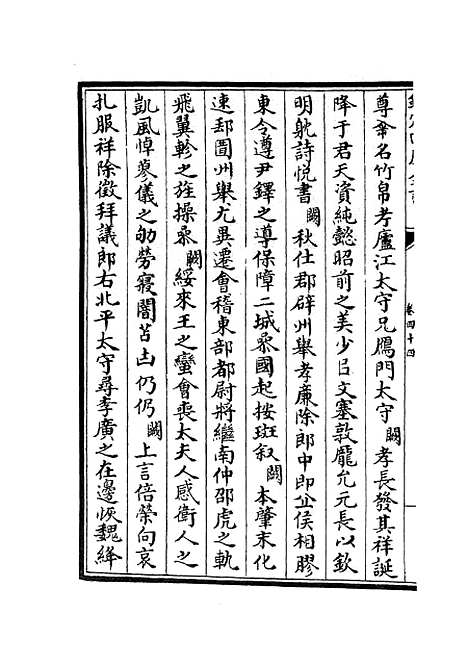 尊𠎷名竹帛考廬江太守兄鴈門太守闕孝長發其祥誕
降于君天資純懿昭前之美少吕文塞敦龐允元長以欽
明躭詩悦書闕秋仕郡辟州舉孝廉除郎中即丘侯相膠
東令遵尹鐸之導保障二城叅國起按斑叙闕本肇末化
速郵啚州舉尤異遷會稽東部都尉將繼南仲邵虎之軌
飛翼軫之旌操叅闕綏來王之蠻會喪太夫人感衛人之
凱風悼蓼儀之劬勞寢闇苫凷仍仍闕上言倍榮向哀
札服祥除徵拜議郎右北平太守尋李廣之在邊恢魏絳
卷四十四